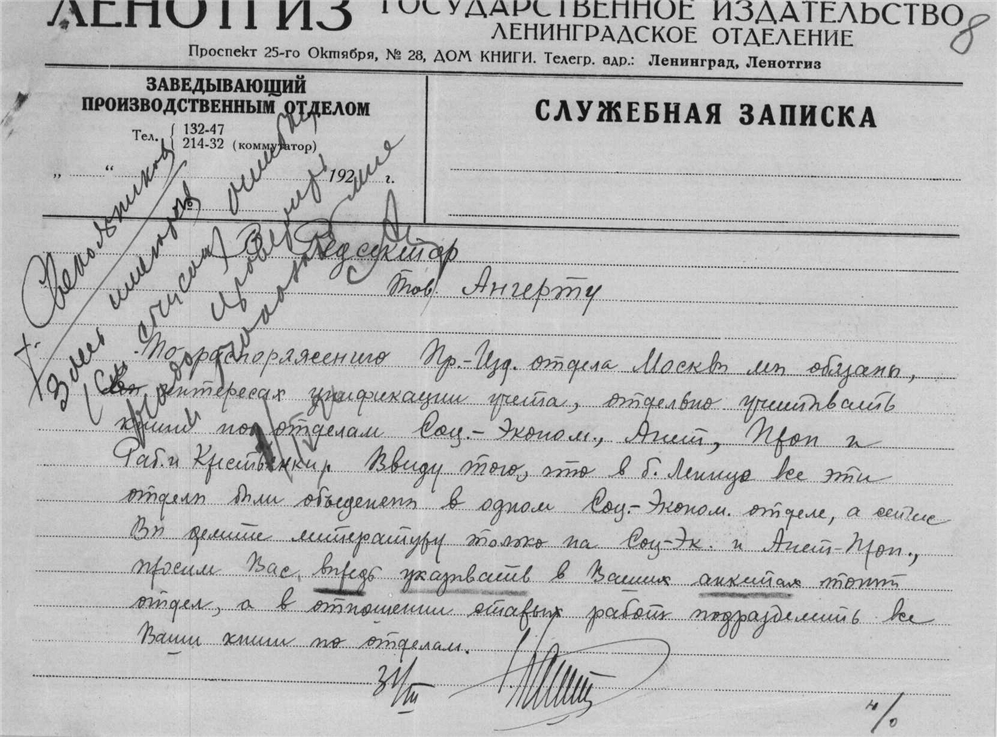 ЛЕНОТГИЗ
ГОСУДАРСТВЕННОЕ ИЗДАТЕЛЬСТВО
ЛЕНИНГРАДСКОЕ ОТДЕЛЕНИЕ
8
Проспект 25-го Октября, № 28, ДОМ КНИГИ. Телегр. адр.: Ленинград, Ленотгиз
ЗАВЕДЫВАЮЩИЙ
ПРОИЗВОДСТВЕННЫМ ОТДЕЛОМ
Тел. { 132-47
214-32 (коммутатор)
„ “ 192 г.
СЛУЖЕБНАЯ ЗАПИСКА
Редсектор
тов. Ангерту
По распоряжению Пр.-Изд. отдела Москвы мы обязаны,
в интересах унификации учета, отдельно учитывать
книги по отделам Соц.-Эконом., Агит, Проп и
Раб. и Крестьянки. Ввиду того, что в б. Ленгизе все эти
отделы были объеденены в одном Соц.-Эконом. отделе, а сейчас
Вы делите литературу только на Соц-Эк. и Агит-Проп.,
просим Вас впредь указывать в Ваших анкетах
отдел, а в отношении работ подразделить все
Ваши книги по отделам.
31/III
Здесь имеются
список